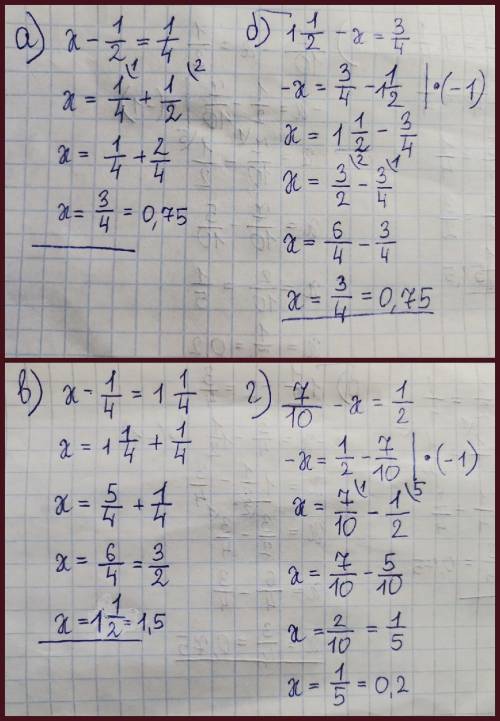 а) x - 1/2 = 1/4
x = 1/4 \1 + 1/2 \2
x = 1/4 + 2/4
x = 3/4 = 0,75
б) 1 1/2 - x = 3/4
-x = 3/4 - 1 1/2 | • (-1)
x = 1 1/2 - 3/4
x = 3/2 \2 - 3/4 \1
x = 6/4 - 3/4
x = 3/4 = 0,75
в) x - 1/4 = 1 1/4
x = 1 1/4 + 1/4
x = 5/4 + 1/4
x = 6/4 = 3/2
x = 1 1/2 = 1,5
г) 7/10 - x = 1/2
-x = 1/2 - 7/10 | • (-1)
x = 7/10 \1 - 1/2 \5
x = 7/10 - 5/10
x = 2/10 = 1/5
x = 1/5 = 0,2